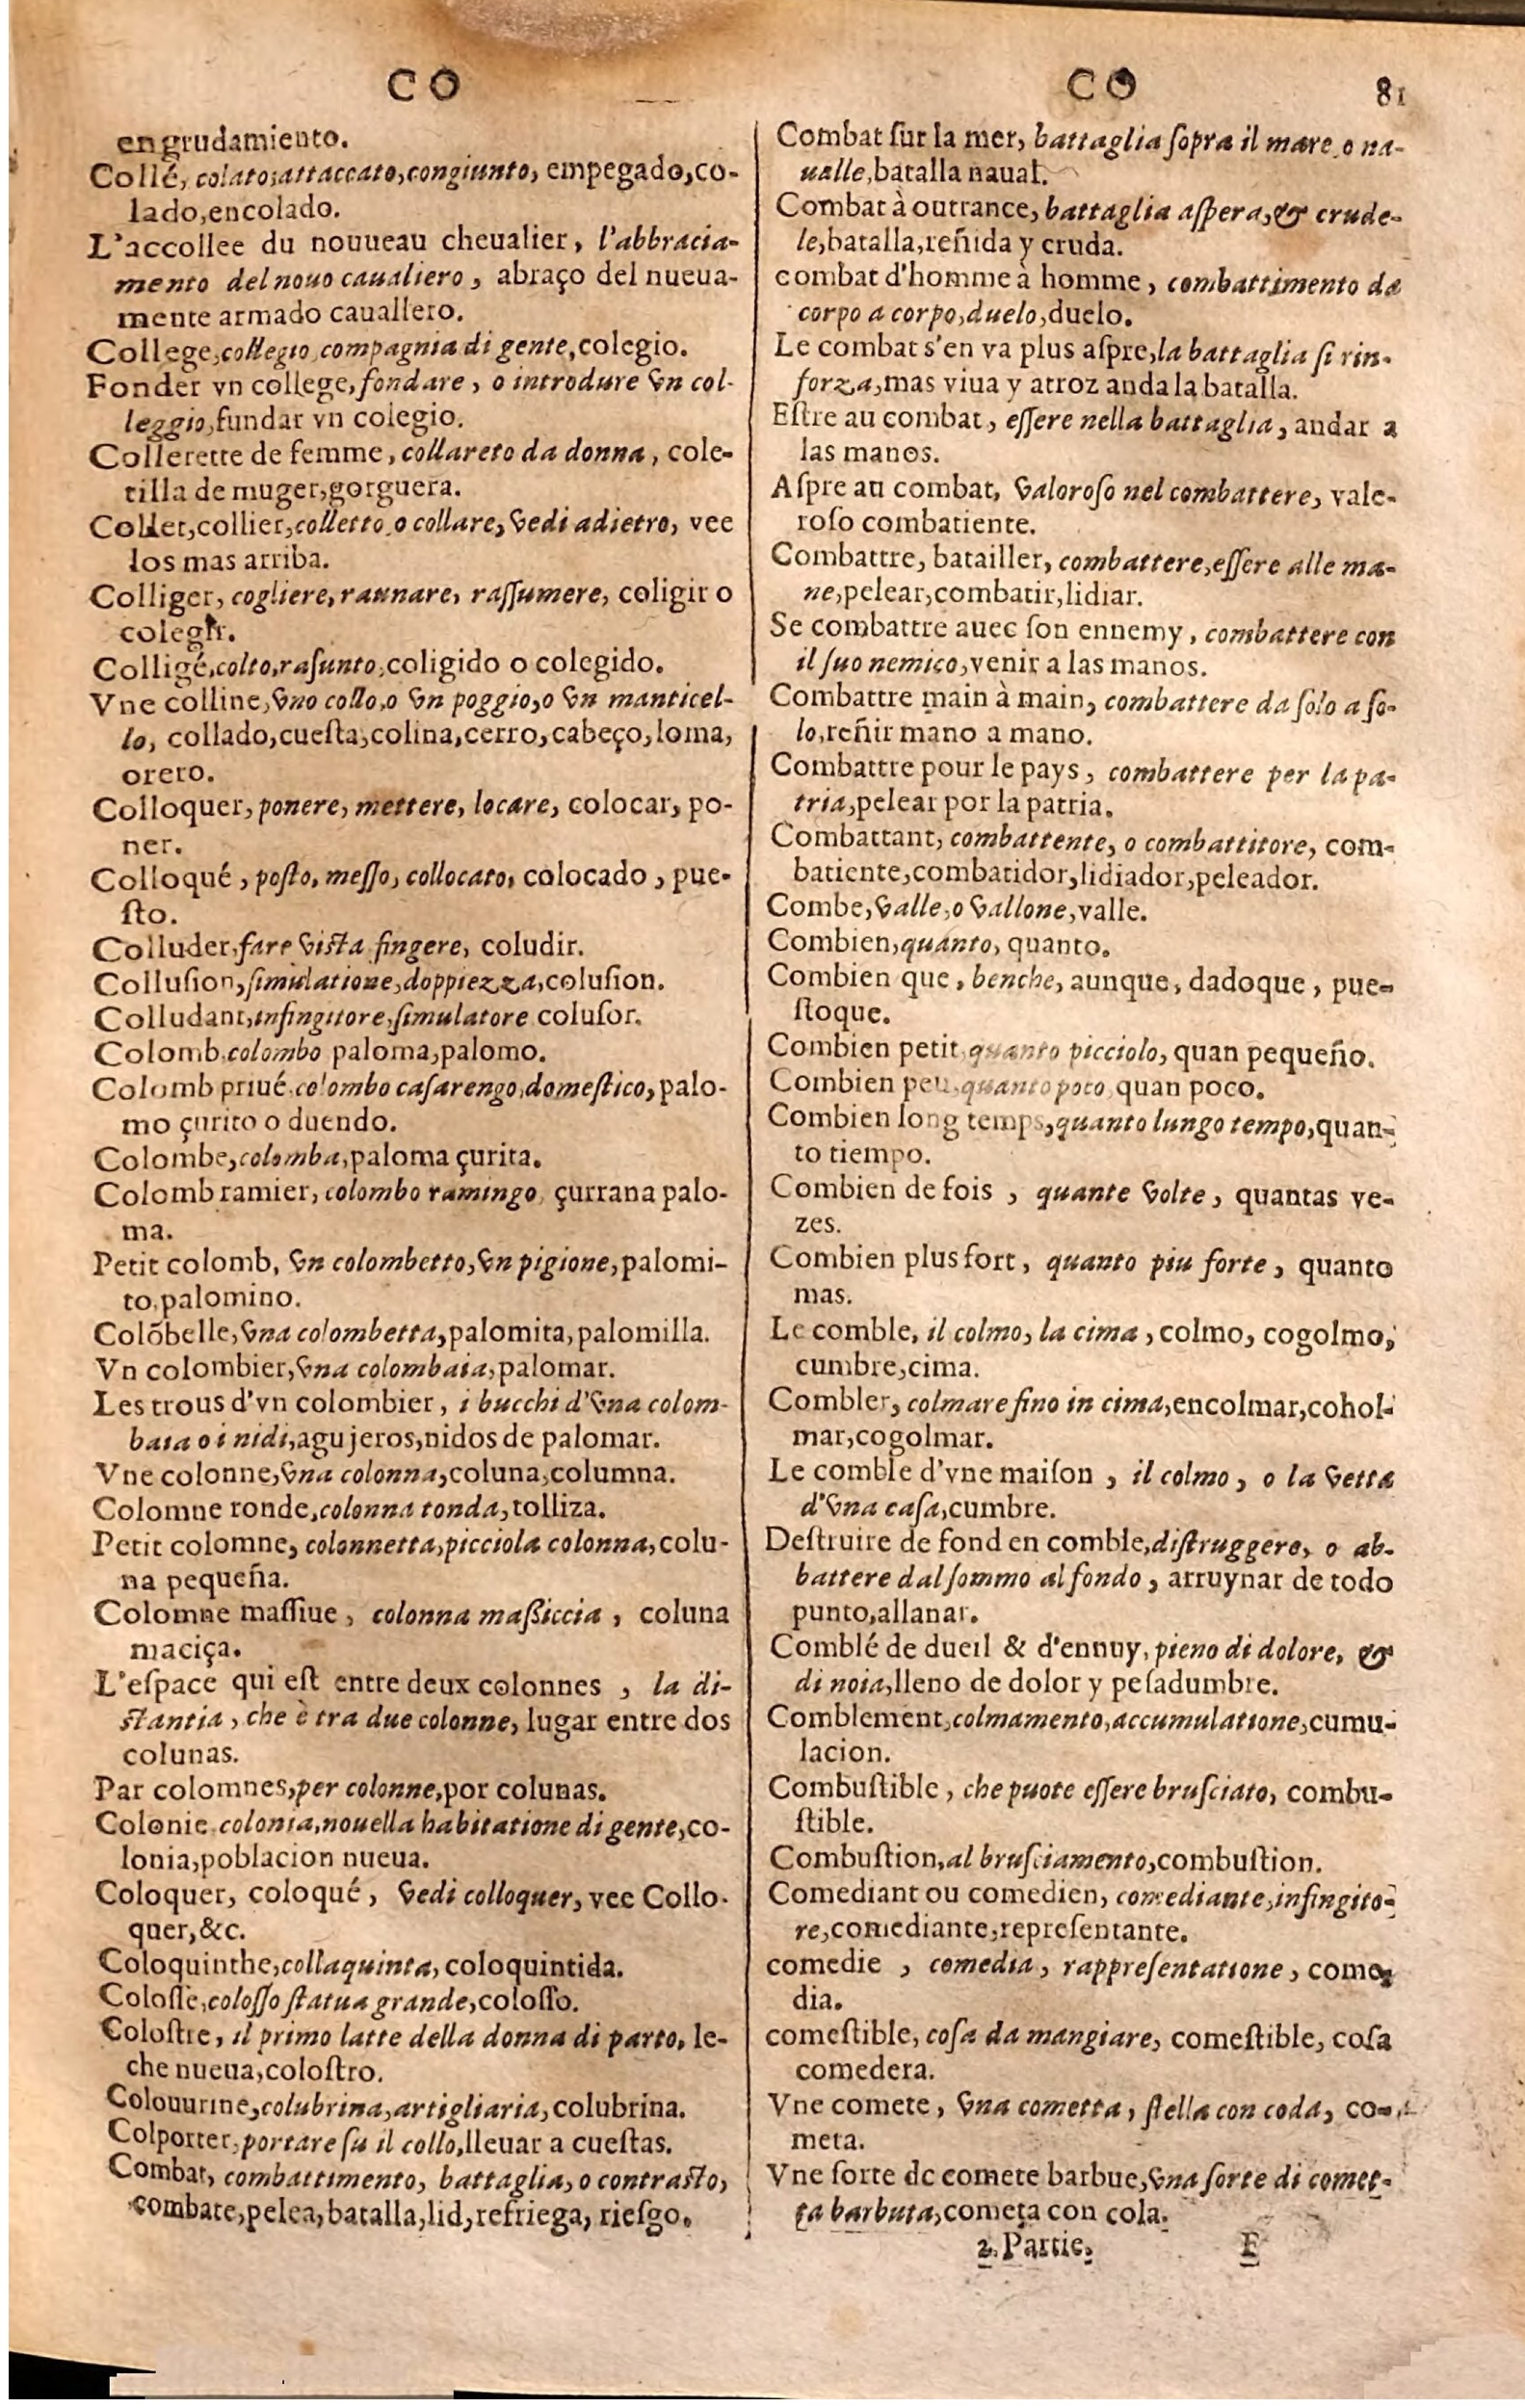 CO
engrudamiento.
Collé, colato, attaccato, congiunto, empegado, co-
lado, encolado.
L'accollee du nouueau cheualier, l'abbracia-
mento del nouo caualiero, abraço del nueua-
mente armado cauallero.
College, collegio, compagnia di gente, colegio.
Fonder vn college, fondare, o introdure vn col-
leggio, fundar vn colegio.
Collerette de femme, collareto da donna, cole-
tilla de muger, gorguera.
Collet, collier, colletto, o collare, vedi adietro, vee
los mas arriba.
Colliger, cogliere, raunare, raſſumere, coligir o
colegir.
Colligé, colto, raſunto, coligido o colegido.
Vne colline, vno collo, o vn poggio, o vn manticel-
lo, collado, cueſta, colina, cerro, cabeço, loma,
orero.
Colloquer, ponere, mettere, locare, colocar, po-
ner.
Colloqué, poſto, meſſo, collocato, colocado, pue-
ſto.
Colluder, fare viſta fingere, coludir.
Colluſion, ſimulatione, doppiezza, coluſion.
Colludant, infingitore, ſimulatore coluſor.
Colomb, colombo paloma, palomo.
Colomb priué, colombo caſarengo, domeſtico, palo-
mo çurito o duendo.
Colombe, colomba, paloma çurita.
Colomb ramier, colombo ramingo, çurrana palo-
ma.
Petit colomb, vn colombetto, vn pigione, palomi-
to, palomino.
Colõbelle, vna colombetta, palomita, palomilla.
Vn colombier, vna colombaia, palomar.
Les trous d'vn colombier, i bucchi d'vna colom-
baia o i nidi, agujeros, nidos de palomar.
Vne colonne, vna colonna, coluna, columna.
Colomne ronde, colonna tonda, tolliza.
Petit colomne, colonnetta, picciola colonna, colu-
na pequeña.
Colomne maſſiue, colonna maßiccia, coluna
maciça.
L'eſpace qui eſt entre deux colonnes, la di-
ſtantia, che è tra due colonne, lugar entre dos
colunas.
Par colomnes, per colonne, por colunas.
Colonie, colonia, nouella habitatione di gente, co-
lonia, poblacion nueua.
Coloquer, coloqué, vedi colloquer, vee Collo-
quer, &c.
Coloquinthe, collaquinta, coloquintida.
Coloſſe, coloſſo ſtatua grande, coloſſo.
Coloſtre, il primo latte della donna di parto, le-
che nueua, coloſtro.
Colouurine, colubrina, artigliaria, colubrina.
Colporter, portare ſu il collo, lleuar a cueſtas.
Combat, combattimento, battaglia, o contraſto,
combate, pelea, batalla, lid, refriega, rieſgo.
CO 81
Combat ſur la mer, battaglia ſopra il mare, o na-
ualle, batalla naual.
Combat à outrance, battaglia aſpera, & crude-
le, batalla, reñida y cruda.
combat d'homme à homme, combattimento da
corpo a corpo, duelo, duelo.
Le combat s'en va plus aſpre, la battaglia ſi rin-
forza, mas viua y atroz anda la batalla.
Eſtre au combat, eſſere nella battaglia, andar a
las manos.
Aſpre au combat, valoroſo nel combattere, vale-
roſo combatiente.
Combattre, batailler, combattere, eſſere alle ma-
ne, pelear, combatir, lidiar.
Se combattre auec ſon ennemy, combattere con
il ſuo nemico, venir a las manos.
Combattre main à main, combattere da ſolo a ſo-
lo, reñir mano a mano.
Combattre pour le pays, combattere per la pa-
tria, pelear por la patria.
Combattant, combattente, o combattitore, com-
batiente, combatidor, lidiador, peleador.
Combe, valle, o vallone, valle.
Combien, quanto, quanto.
Combien que, benche, aunque, dadoque, pue-
ſtoque.
Combien petit, quanto picciolo, quan pequeño.
Combien peu, quanto poco, quan poco.
Combien long temps, quanto lungo tempo, quan-
to tiempo.
Combien de fois, quante volte, quantas ve-
zes.
Combien plus fort, quanto piu forte, quanto
mas.
Le comble, il colmo, la cima, colmo, cogolmo,
cumbre, cima.
Combler, colmare fino in cima, encolmar, cohol-
mar, cogolmar.
Le comble d'vne maiſon, il colmo, o la vetta
d'vna caſa, cumbre.
Deſtruire de fond en comble, diſtruggere, o ab-
battere dal ſommo al fondo, arruynar de todo
punto, allanar.
Comblé de dueil & d'ennuy, pieno di dolore, &
di noia, lleno de dolor y peſadumbre.
Comblement, colmamento, accumulatione, cumu-
lacion.
Combuſtible, che puote eſſere bruſciato, combu-
ſtible.
Combuſtion, al bruſciamento, combuſtion.
Comediant ou comedien, comediante, infingito-
re, comediante, repreſentante.
comedie, comedia, rappreſentatione, come-
dia.
comeſtible, coſa da mangiare, comeſtible, coſa
comedera.
Vne comete, vna cometta, ſtella con coda, co-
meta.
Vne ſorte de comete barbue, vna ſorte di comet-
ta barbuta, cometa con cola.
2. Partie, F